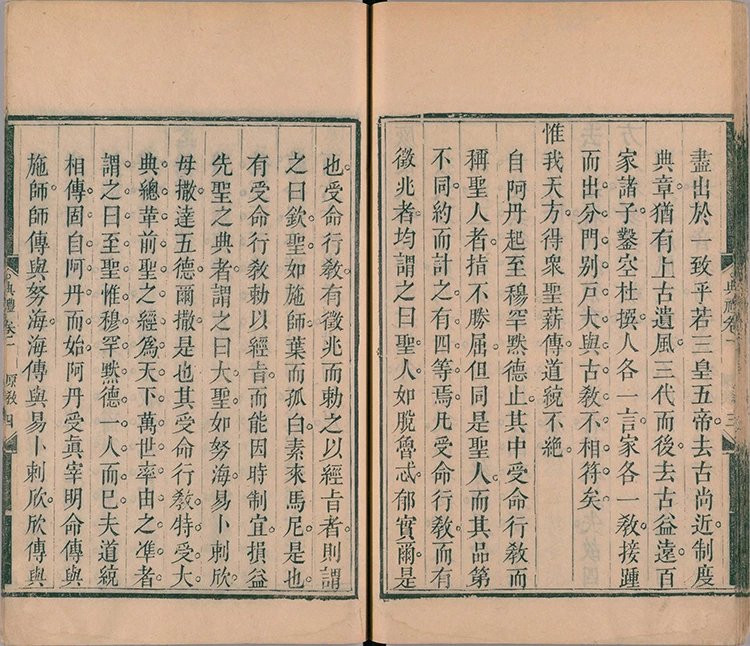 盡出於一致乎若三皇五帝去古尚近制度
典章猶有上古遺風三代而後去古益遠百
家諸子鑿空杜撰人各一言家各一敎接踵
而出分門别戸大與古敎不相符矣
惟我天方得衆聖薪傳道統不絶
自阿丹起至穆罕默德止其中受命行敎而
稱聖人者指不勝屈但同是聖人而其品第
不同約而計之有四等焉凡受命行敎而有
徵兆者均謂之曰聖人如脫魯忒郁實爾是
也受命行敎有徵兆而勅之以經旨者則謂
之曰欽聖如施師葉而孤白素來馬尼是也
有受命行敎勅以經旨而能因時制宜損益
先聖之典者謂之曰大聖如努海易卜剌欣
母撒達五德爾撒是也其受命行敎特受大
典總華前聖之經爲天下萬世率由之凖者
謂之曰至聖惟穆罕默德一人而已夫道統
相傳固自阿丹而始阿丹受眞宰明命傳與
施師師傳與努海海傳與易卜剌欣欣傳與
典禮 卷一 原敎 四